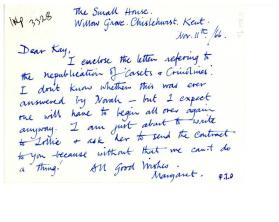 Wp 3328
The Small House.
Willow Grove. Chislehurst. Kent.
Nov. 11th /66.
Dear Kay,
I enclose the letter refering to
the republication of Corsets & Crinolines.
I don't know whether this was ever
answered by Norah – but I expect
one will have to begin all over again
anyway. I am just about to write
to Lollie & ask her to send the contract
to you because without that we can't do
a thing! All Good Wishes
Margaret. P.T.O